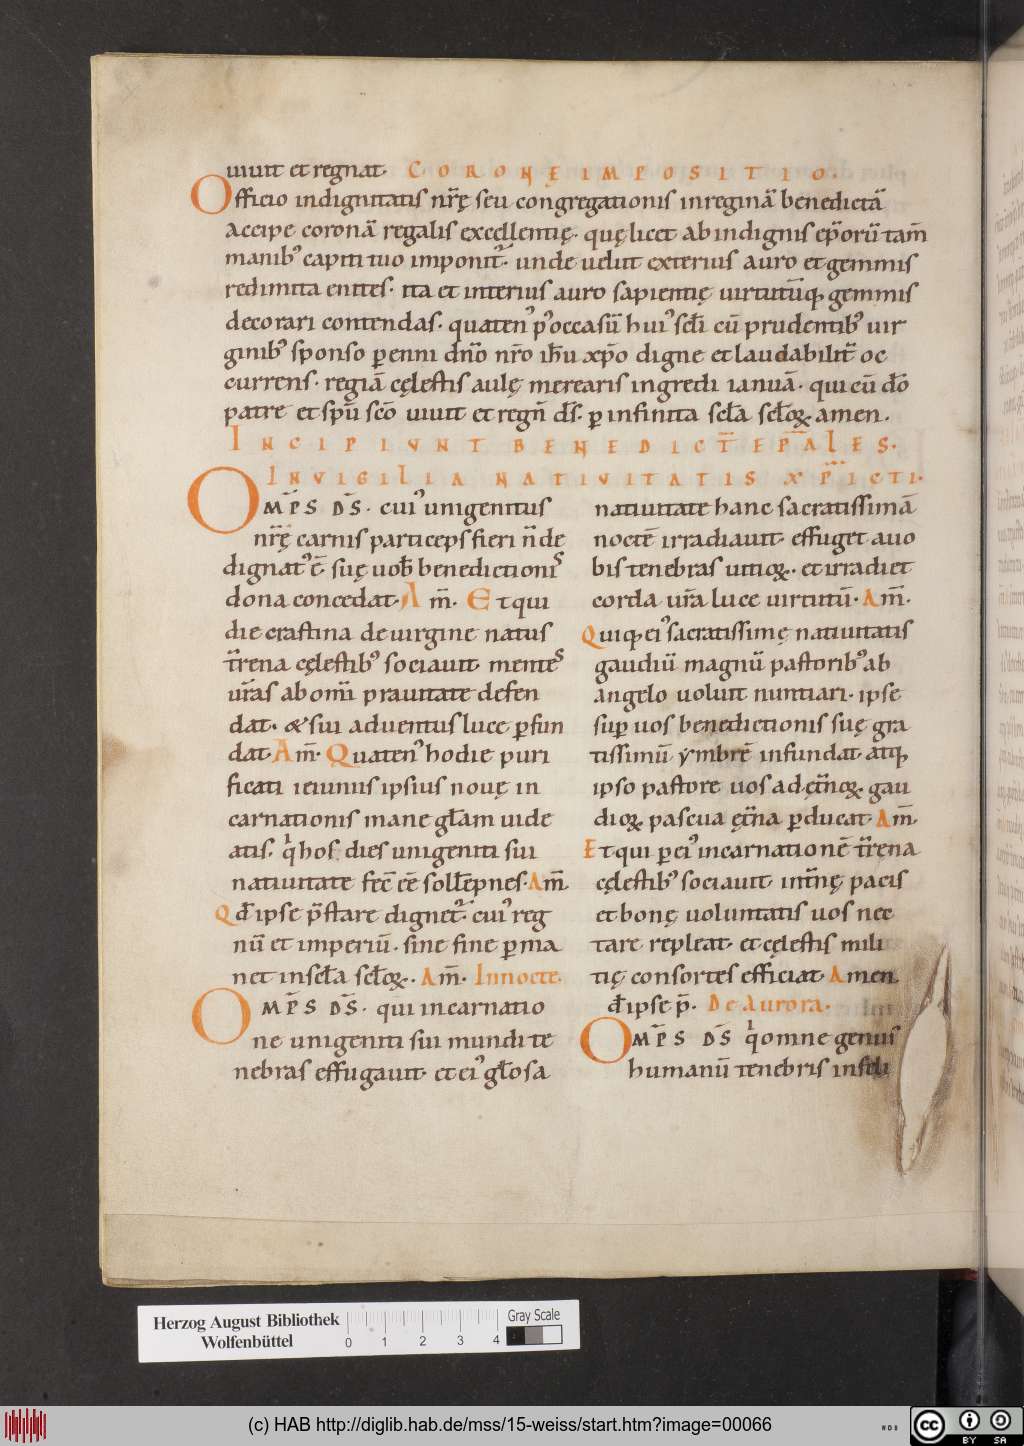 uiuit et regnat. CORONĘ IMPOSITIO.
Officio indignitatis nr̄ę seu congregationis in reginā benedictā
Accipe coronā regalis excellentię. quę licet ab indignis ep̄orū tam̄
manib⁹ capiti tuo imponit̄. unde uelut exterius auro et gemmis
redimita enites. ita et interius auro sapientię uirtutūq; gemmis
decorari contendas. quaten⁹ p⁹ occasū hui⁹ scl̄i cū prudentib⁹ uir
ginib⁹ sponso ꝑenni dn̄o nr̄o ih̄u xp̄o digne et laudabilit̄ oc
currens. regiā cęlestis aulę merearis ingredi ianuā. qui cū do̅
patre et sp̄u sc̄o uiuit et regn̄ ds̄. ꝑ infinita scl̄a scl̄oꝝ. amen.
INCIPIVNT BENEDICT̄ EP̄ALES.
IN VIGILIA NATIVITATIS XP̄ICTI.
OMP̄S DS̄. cui⁹ unigenitus
nr̄ę carnis particeps fieri n̄ de
dignat⁹ ē. suę uob̄ benedictioni⁹
dona concedat. Am̄. Et qui
die crastina de uirgine natus
tr̄rena cęlestib⁹ sociauit mente⁹
ur̄as ab om̄i prauitate defen
dat. & sui aduentus luce ꝑfun
dat Am̄. Quaten⁹ hodie puri
ficati ieiuniis ipsius nouę in
carnationis mane gl̄am uide
atis. qͥ hos dies unigeniti sui
natiuitate fec̄ ee̅ soll̄epnes. Am̄
Qd̄ ipse p̄stare dignet̄. cui⁹ reg
nū et imperiū. sine fine ꝑma
net in scl̄a scl̄oꝝ. Am̄. In nocte.
OMP̄S DS̄. qui incarnatio
ne unigeniti sui mundi te
nebras effugauit. et ei⁹ gl̄osa
natiuitate hanc sacratissimā
noctē irradiauit. effuget a uo
bis tenebras uitioꝝ. et irradiet
corda ur̄a luce uirtutū. Am̄.
Quiq; ei⁹ sacratissimę natiuitatis
gaudiū magnū pastorib⁹ ab
angelo uoluit nuntiari. ipse
suꝑ uos benedictionis suę gra
tissimū ẏmbrē infundat. atq;
ipso pastore uos ad ęt̄noꝝ gau
dioꝝ pascua ęt̄na ꝑducat. Am̄.
Et qui ꝑ ei⁹ incarnationē tr̄rena
cęlestib⁹ sociauit. int̄nę pacis
et bonę uoluntatis uos nec
tare repleat. et cęlestis mili
tię consortes efficiat. Amen
qd̄ ipse p̄. De Aurora.
OMP̄S DS̄ qͥ omne genus
humanū tenebris infideli
Herzog August Bibliothek
Wolfenbüttel
0 1 2 3 4
Gray Scale
(c) HAB http://diglib.hab.de/mss/15-weiss/start.htm?image=00066
cc BY SA